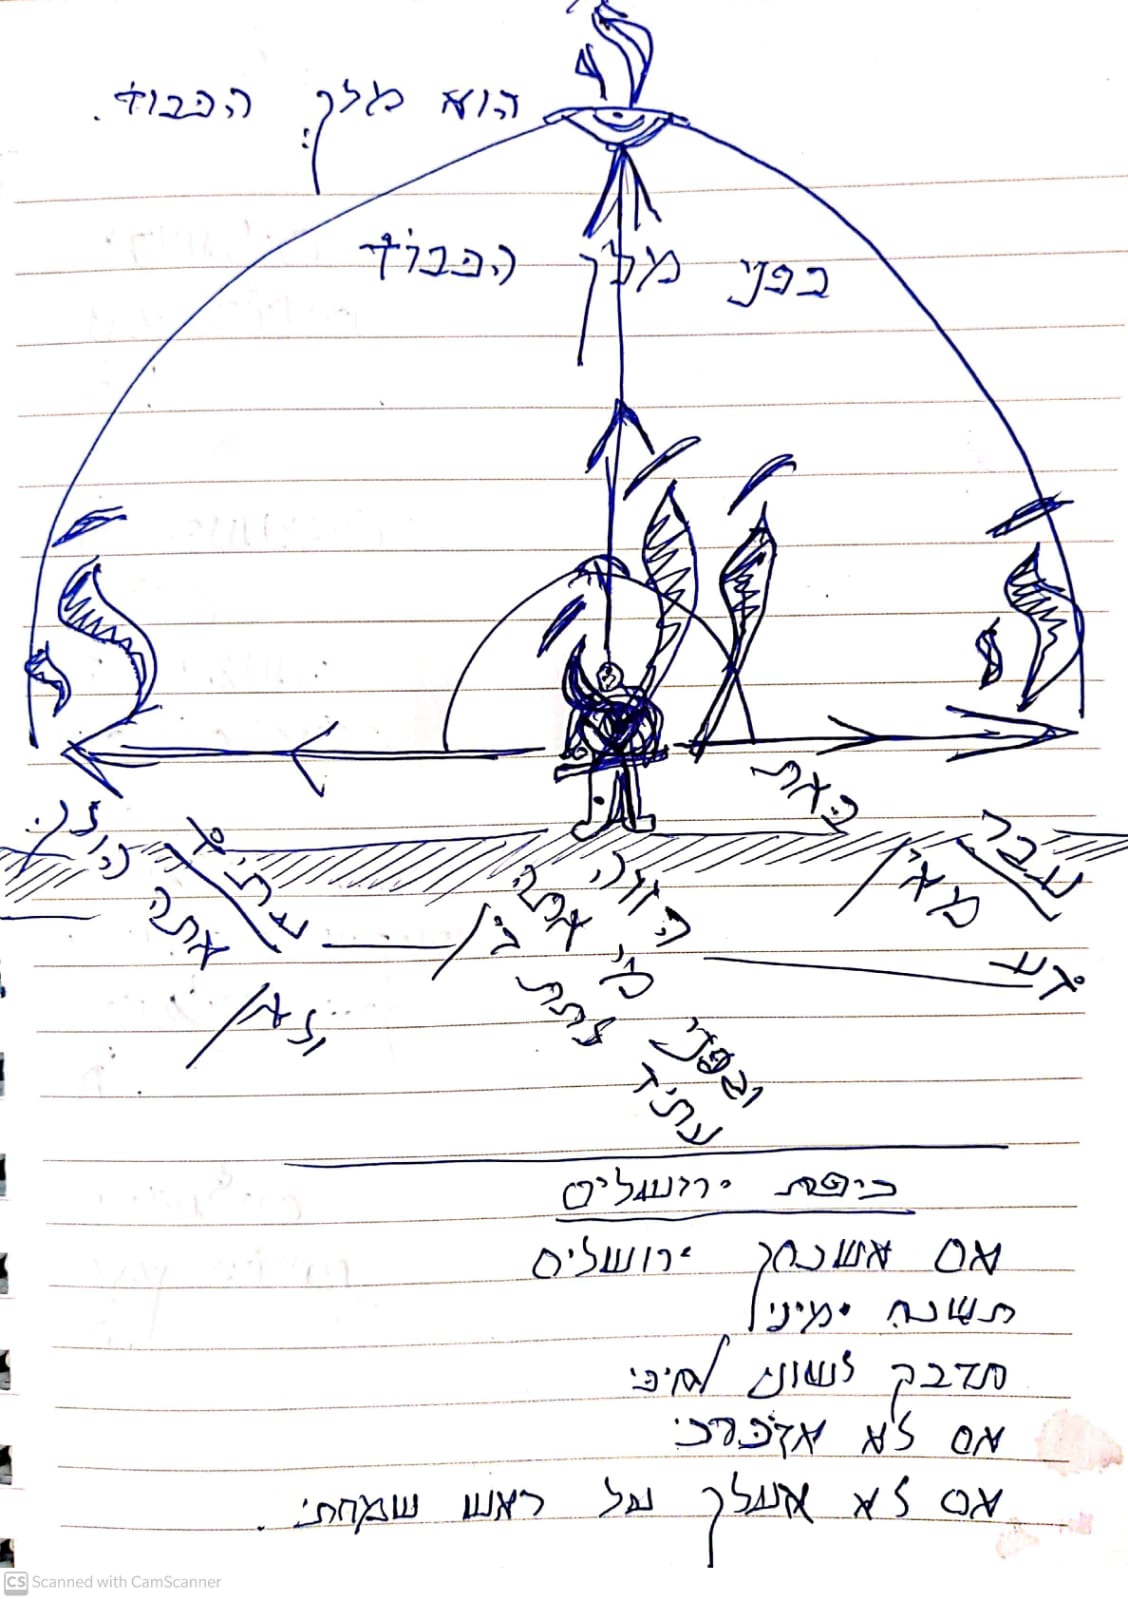 הוא מלך הכבוד.
בפני מלך הכבוד
מאין באת
דע
עבר
הווה
אתה
ולאן אתה הולך
עתיד
ולפני מי אתה
עתיד ליתן דין
כיפת ירושלים
אם אשכחך ירושלים
תשכח ימיני
תדבק לשוני לחיכי
אם לא אזכרכי
אם לא אעלך על ראש שמחתי.
CS Scanned with CamScanner